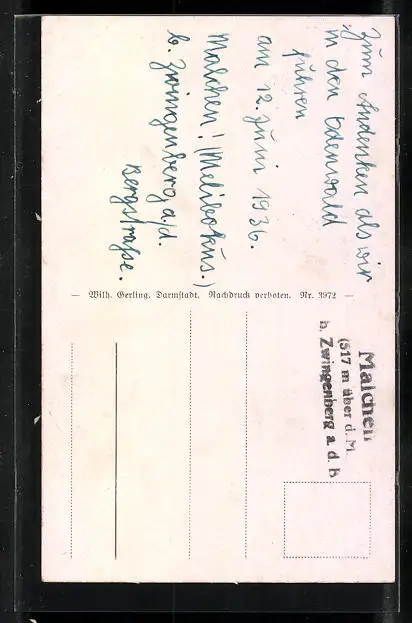 Zum Andenken als wir
in den Odenwald
fuhren
am 12. Juni 1936.
Malchen! (Melibokus.)
b. Zwingenberg a/d.
Bergstraße.
— Wilh. Gerling. Darmstadt. Nachdruck verboten. Nr. 3972 —
Malchen
(517 m über d. M.
b. Zwingenberg a. d. b